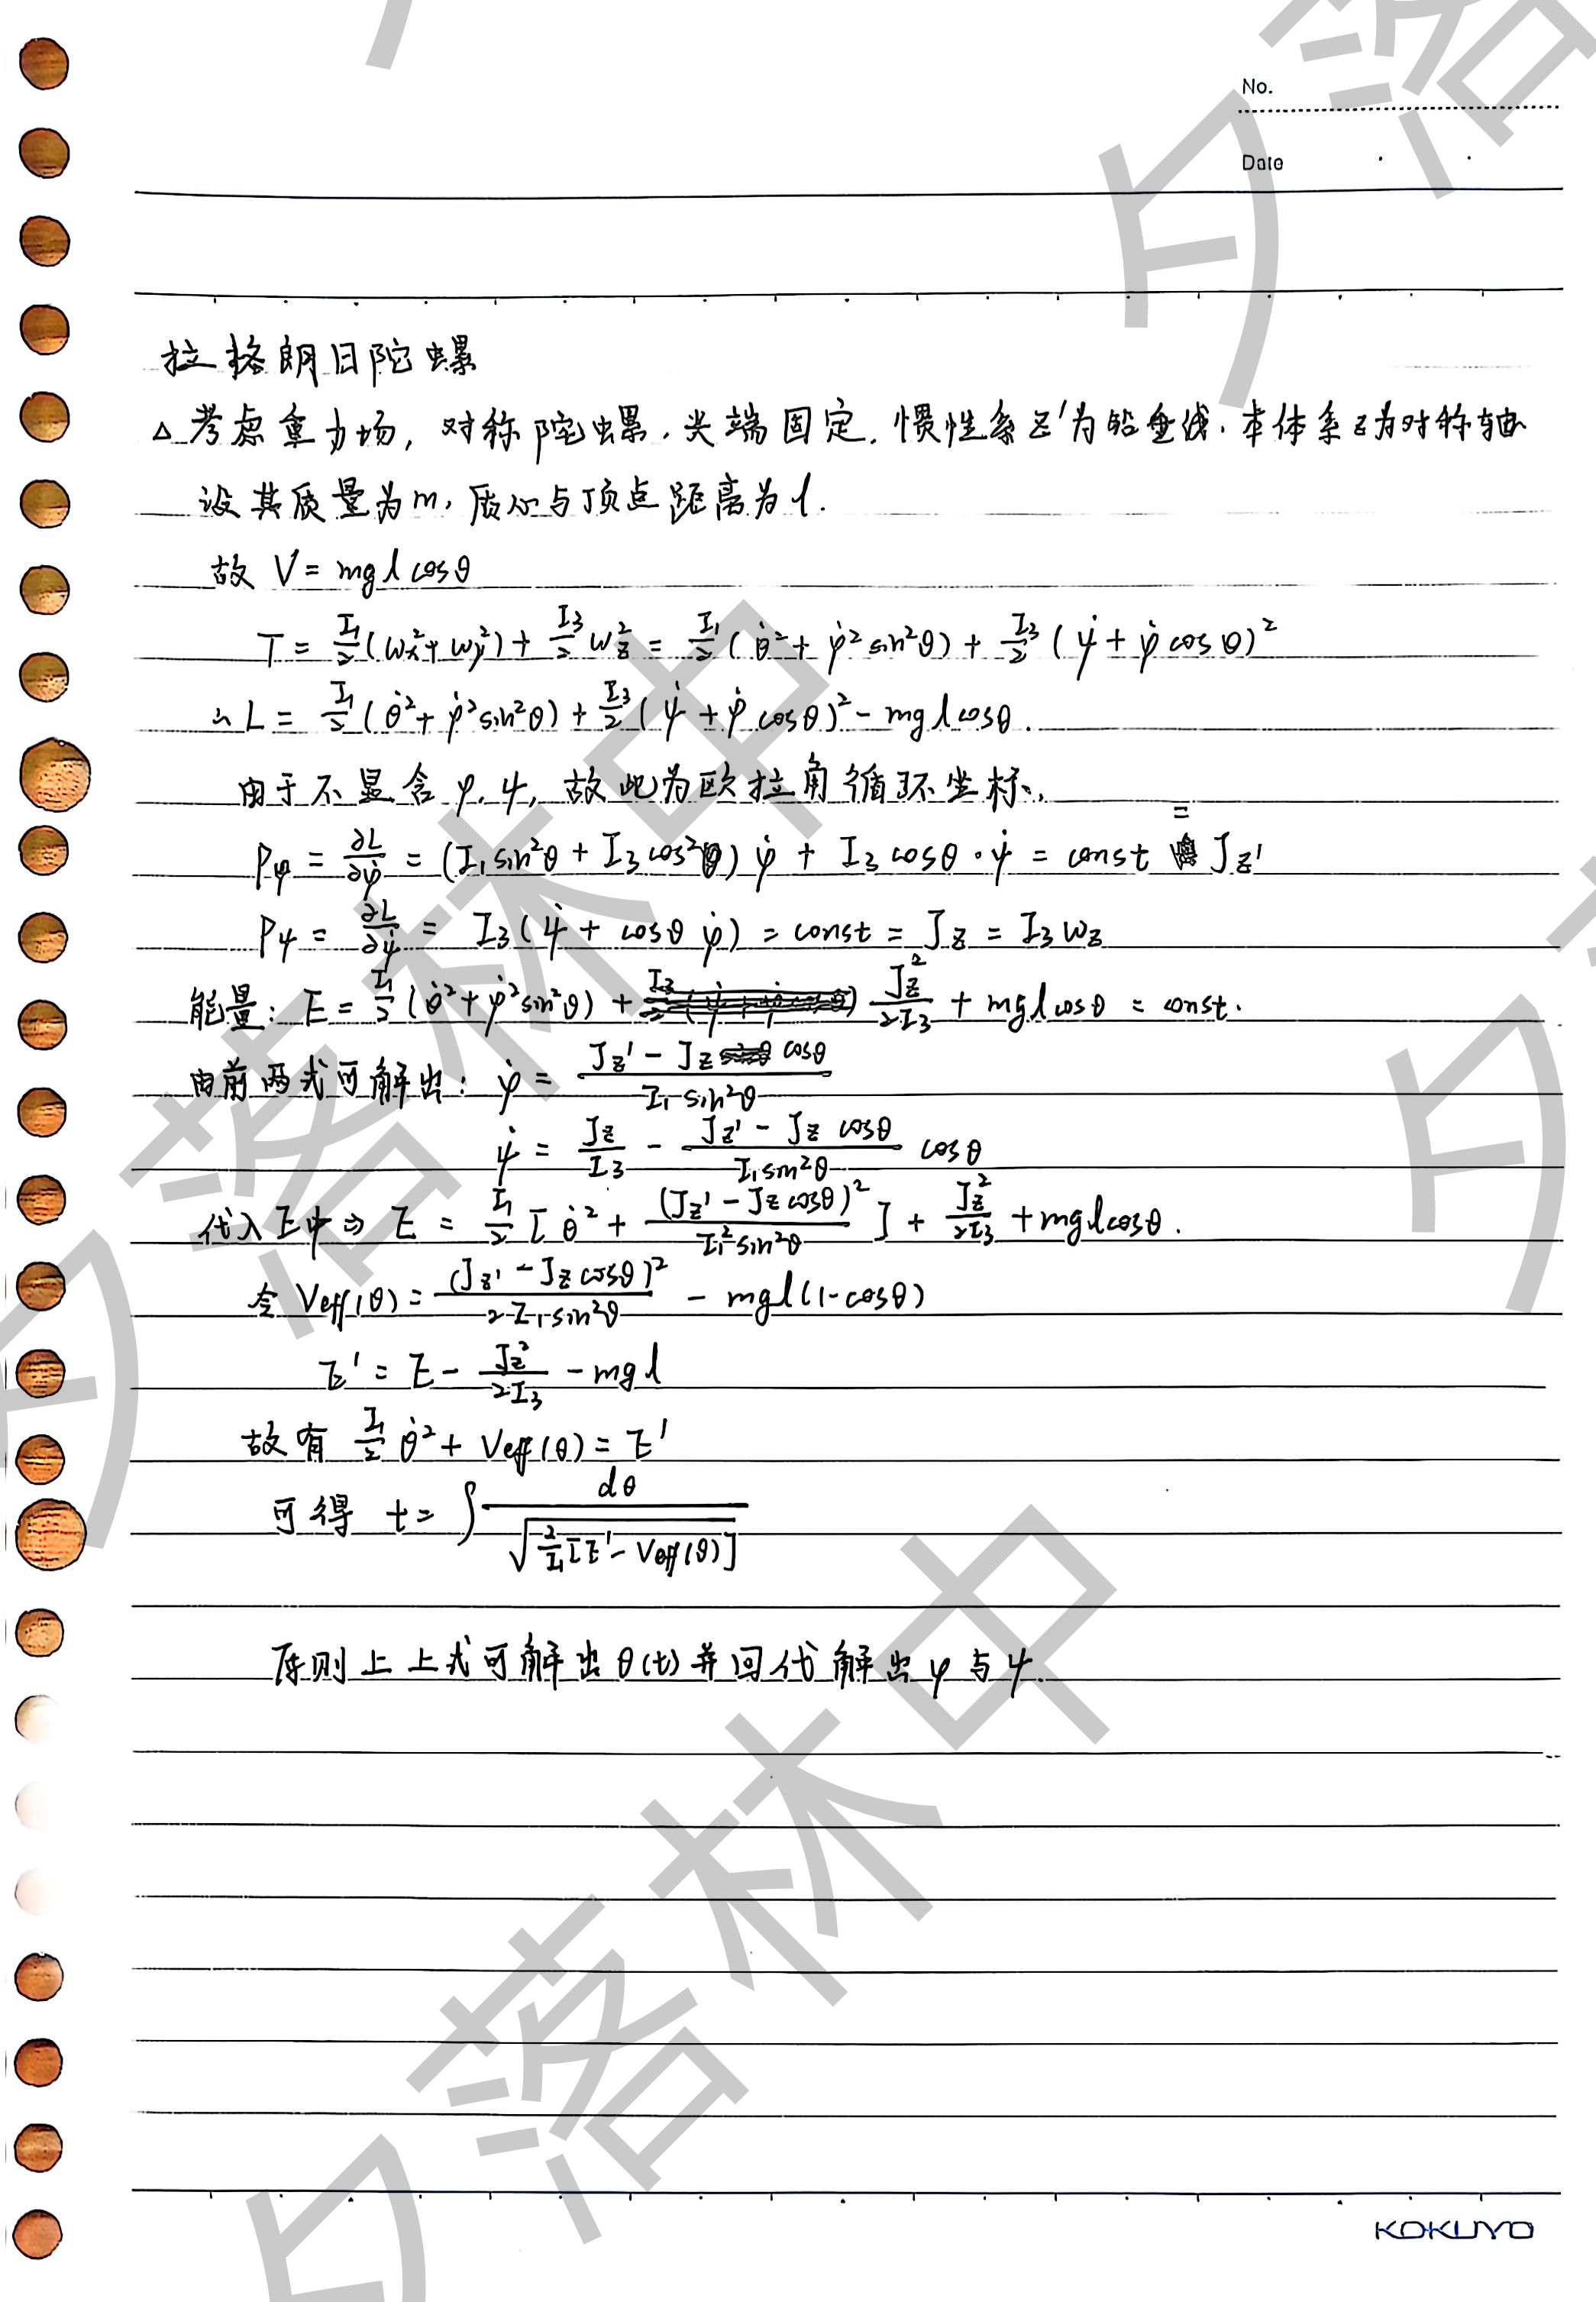 No.
Date
拉格朗日陀螺
△ 考虑重力场, 对称陀螺, 尖端固定. 惯性系z'为铅垂线, 本体系z为对称轴
设其质量为m, 质心与顶点距离为l.
故 V = mgl cosθ
T = I₁/2 (ωx² + ωy²) + I₃/2 ωz² = I₁/2 (θ̇² + φ̇² sin²θ) + I₃/2 (ψ̇ + φ̇ cosθ)²
∴ L = I₁/2 (θ̇² + φ̇² sin²θ) + I₃/2 (ψ̇ + φ̇ cosθ)² - mgl cosθ.
由于不显含 φ, ψ, 故此为欧拉角循环坐标,
Pφ = ∂L/∂φ̇ = (I₁ sin²θ + I₃ cos²θ) φ̇ + I₃ cosθ · ψ̇ = const = Jz'
Pψ = ∂L/∂ψ̇ = I₃ (ψ̇ + cosθ φ̇) = const = Jz = I₃ ωz
能量: E = I₁/2 (θ̇² + φ̇² sin²θ) + Jz²/2I₃ + mgl cosθ = const.
由前两式可解出: φ̇ = (Jz' - Jz cosθ)/(I₁ sin²θ)
ψ̇ = Jz/I₃ - (Jz' - Jz cosθ)/(I₁ sin²θ) cosθ
代入E中 ⇒ E = I₁/2 [θ̇² + (Jz' - Jz cosθ)²/(I₁² sin²θ)] + Jz²/2I₃ + mgl cosθ.
令 Veff(θ) = (Jz' - Jz cosθ)²/(2I₁ sin²θ) - mgl(1-cosθ)
E' = E - Jz²/2I₃ - mgl
故有 I₁/2 θ̇² + Veff(θ) = E'
可得 t = ∫ dθ/√(2/I₁ [E' - Veff(θ)])
原则上上式可解出θ(t)并回代解出φ与ψ.
KOKUYO
夕落林中
夕落林中
夕落
夕